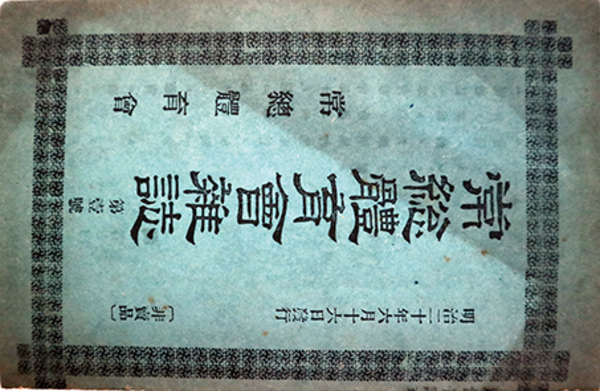 明治二十年六月十六日發行
〔非賣品〕
常總體育會雜誌
第壹號
常總體育會